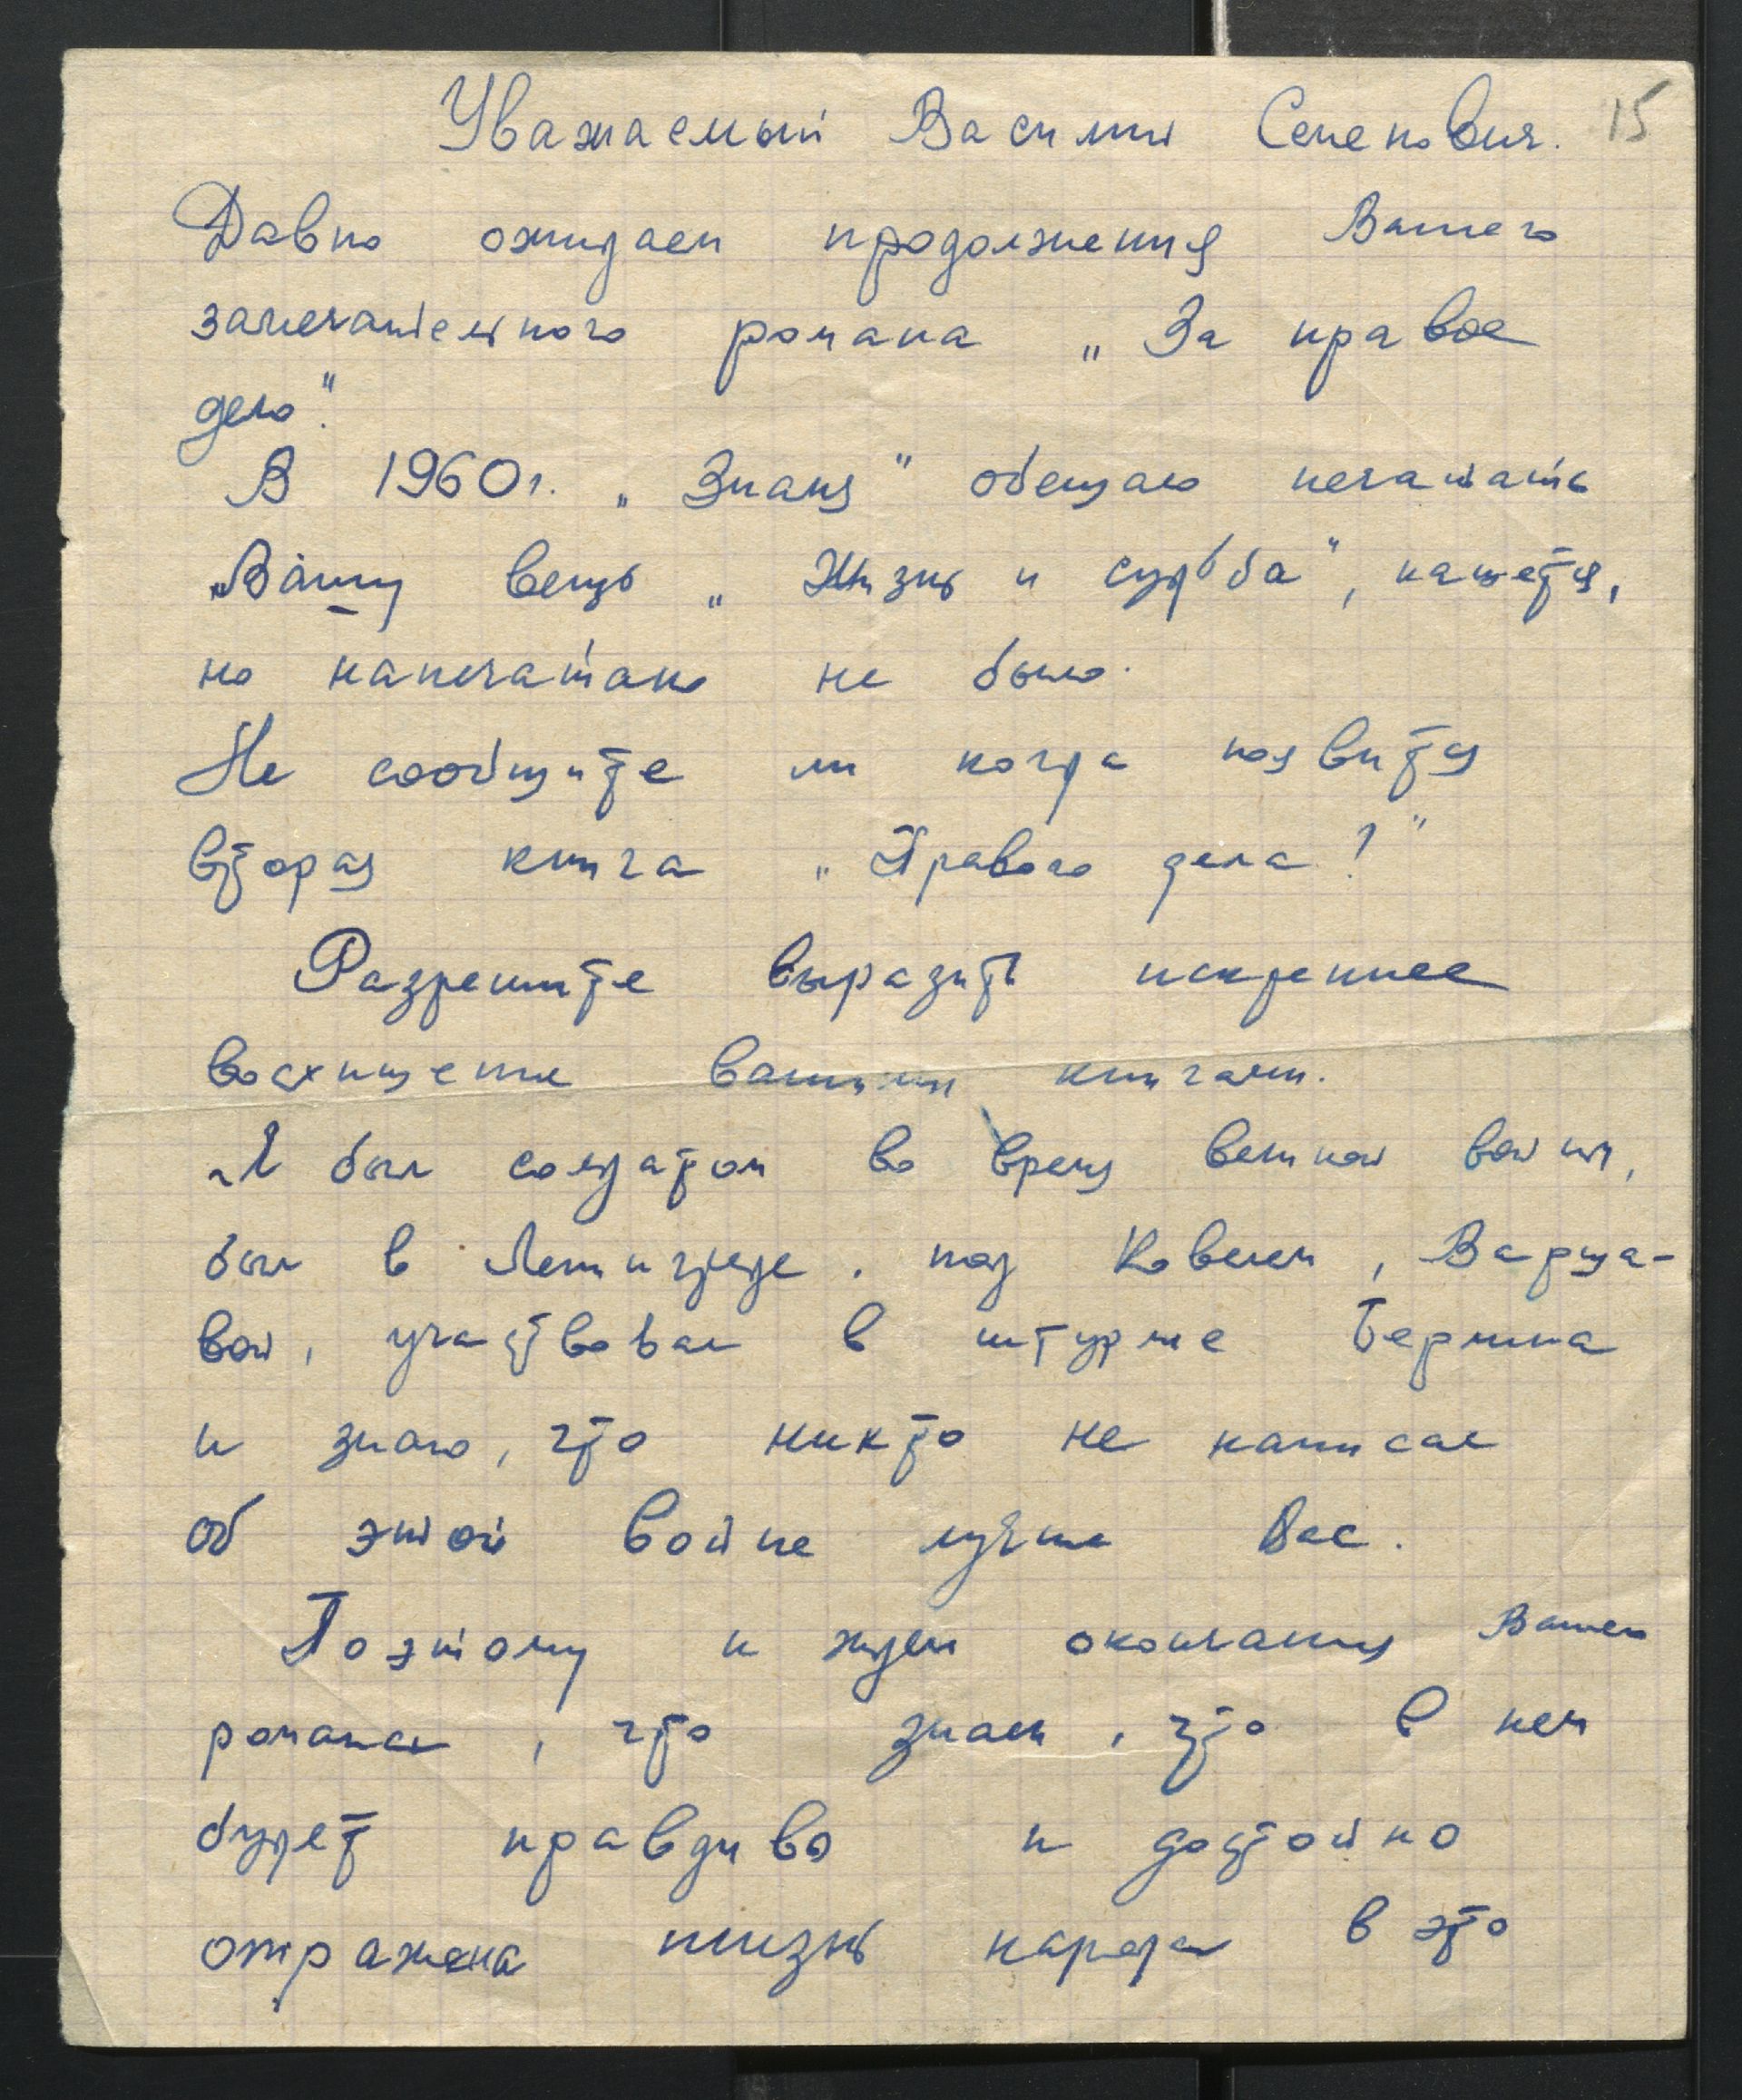 15
Уважаемый Василий Семенович.
Давно ожидаем продолжения Вашего
замечательного романа „За правое
дело".
В 1960 г. „Знамя" обещало печатать
Вашу вещь „Жизнь и судьба", кажется,
но напечатано не было.
Не сообщите ли когда появится
вторая книга „Правого дела?"
Разрешите выразить искреннее
восхищение вашими книгами.
Я был солдатом во время великой войны,
был в Ленинграде, под Ковелем, Варша-
вой, участвовал в штурме Берлина
и знаю, что никто не написал
об этой войне лучше Вас.
Поэтому и ждем окончания Вашего
романа, что знаем, что в нем
будет правдиво и достойно
отражена жизнь народа в это